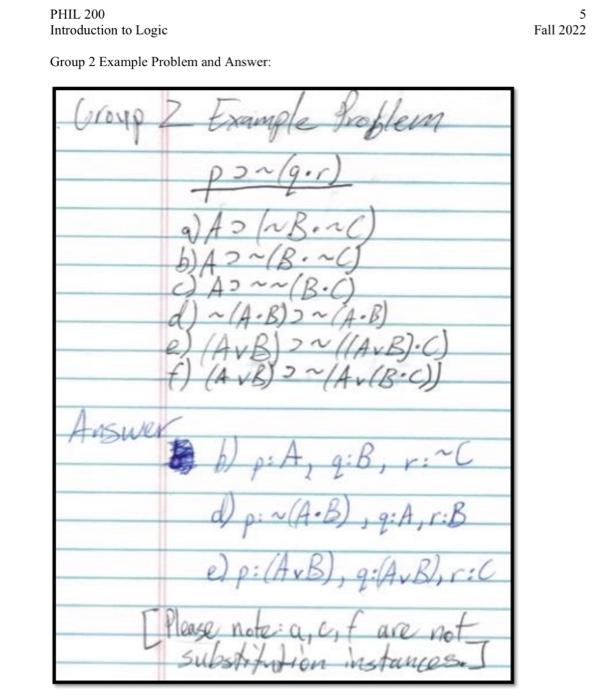 PHIL 200
5
Introduction to Logic
Fall 2022
Group 2 Example Problem and Answer:
Group 2 Example Problem
p ⊃ ~(q • r)
a) A ⊃ (~B • ~C)
b) A ⊃ ~(B • ~C)
c) A ⊃ ~~(B • C)
d) ~(A • B) ⊃ ~(A • B)
e) (A v B) ⊃ ~((A v B) • C)
f) (A v B) ⊃ ~(A v (B • C))
Answer
b) p: A, q: B, r: ~C
d) p: ~(A • B), q: A, r: B
e) p: (A v B), q: (A v B), r: C
[Please note: a, c, f are not
substitution instances.]